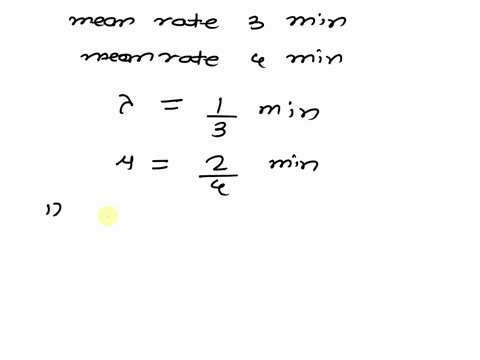 mean rate 3 min
mean rate 4 min
λ = 1/3 min
μ = 2/4 min
1)